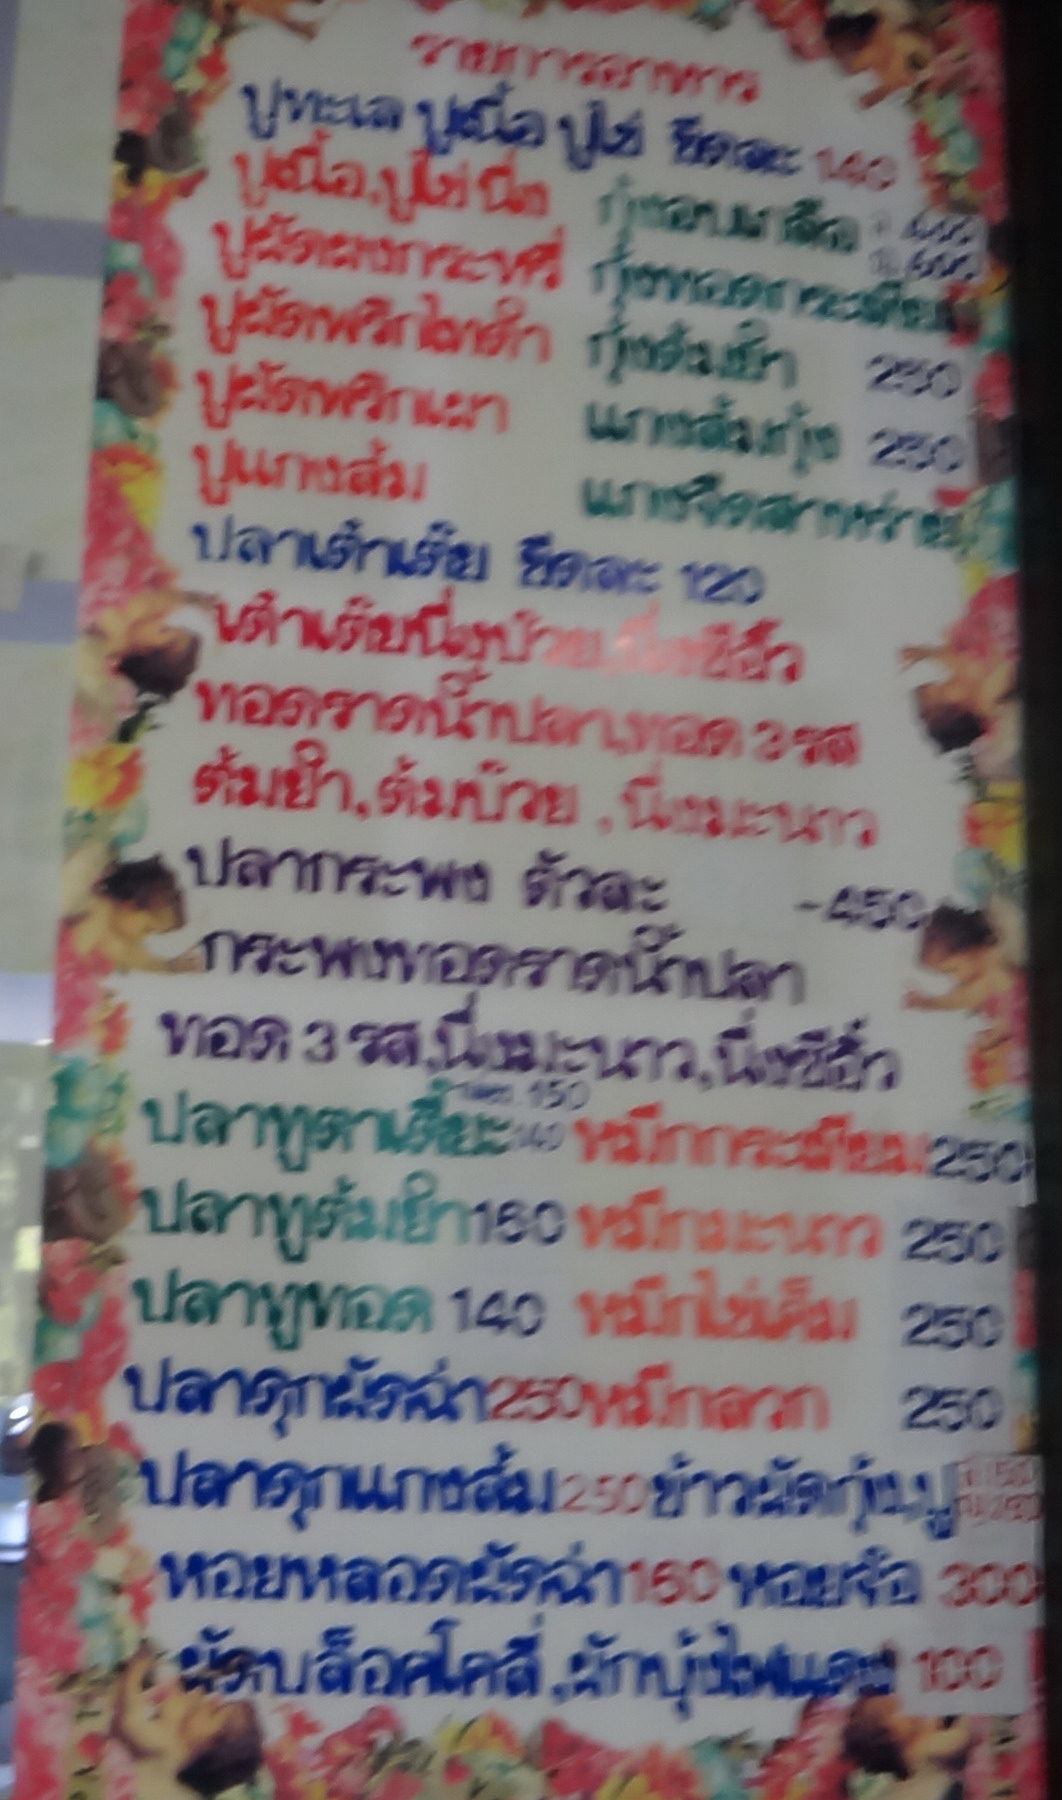 รายการอาหาร
ปูทะเล ปูเนื้อ ปูไข่ ขีดละ 140
ปูเนื้อ,ปูไข่ นึ่ง กุ้งอบเกลือ
ปูผัดผงกระหรี่ กุ้งทอดกระเทียม
ปูผัดพริกไทดำ กุ้งต้มยำ 250
ปูผัดพริกเผา แกงส้มกุ้ง 250
ปูแกงส้ม แกงจืดสาหร่าย
ปลาเต๋าเต้ย ขีดละ 120
เต๋าเต้ยนึ่งบ๊วย,นึ่งซีอิ๊ว
ทอดราดน้ำปลา,ทอด 3 รส
ต้มยำ,ต้มบ๊วย ,นึ่งมะนาว
ปลากระพง ตัวละ -450
กระพงทอดราดน้ำปลา
ทอด 3 รส,นึ่งมะนาว,นึ่งซีอิ๊ว
150
ปลาทูตาเตี๊ยะ 140 หมึกกระเทียม 250
ปลาทูต้มยำ 160 หมึกมะนาว 250
ปลาทูทอด 140 หมึกไข่เค็ม 250
ปลาดุกผัดฉ่า 250 หมึกลวก 250
ปลาดุกแกงส้ม 250 ข้าวผัดกุ้ง,ปู
หอยหลอดผัดฉ่า 160 หอยจ๊อ 300
ผัดบล็อคโคลี่,ผักบุ้งไฟแดง 100